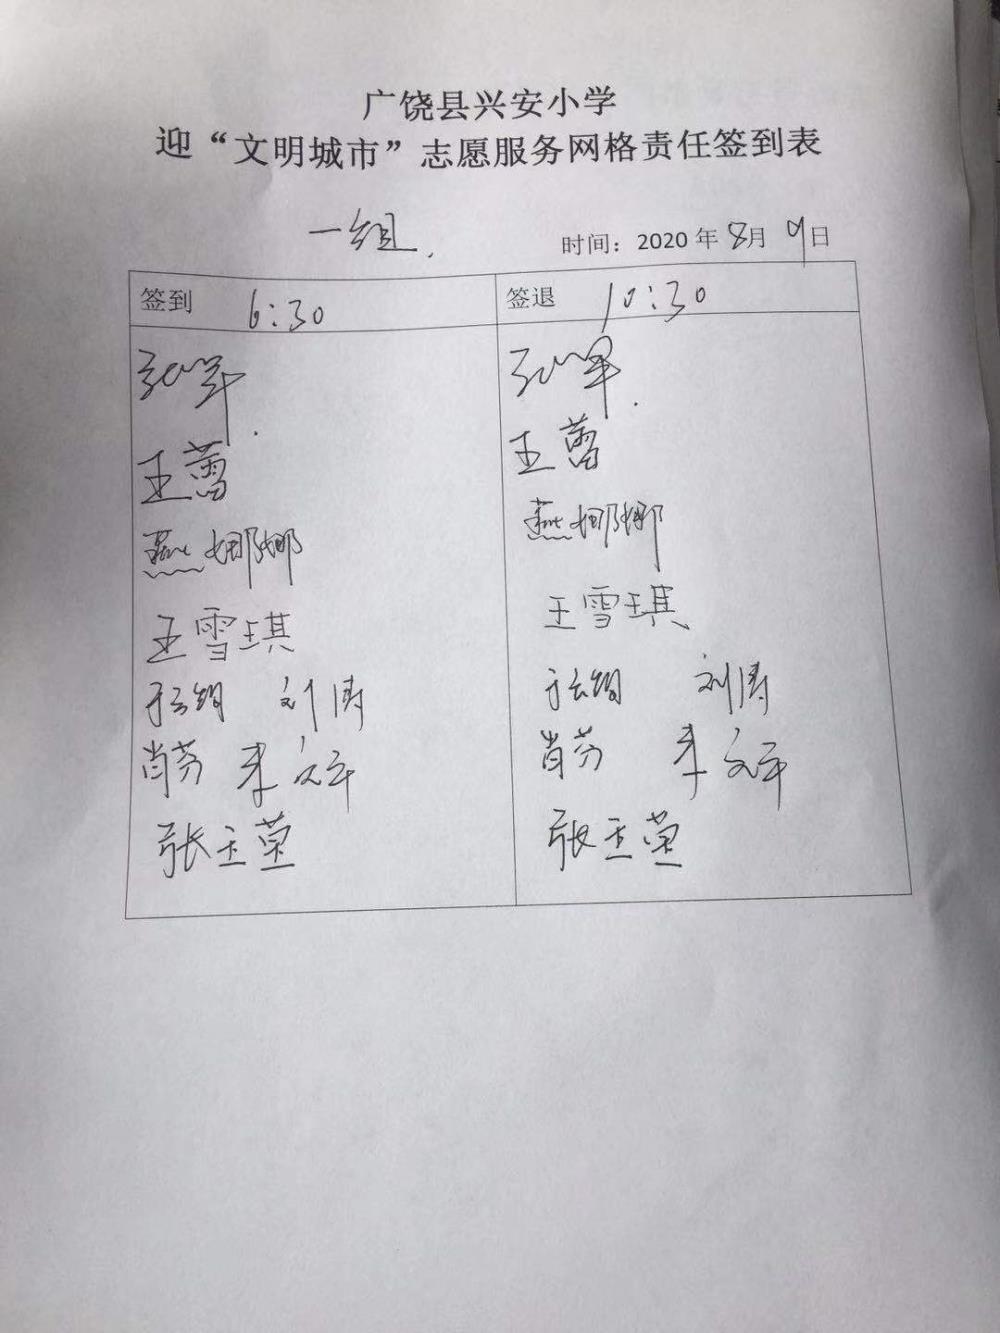 广饶县兴安小学
迎“文明城市”志愿服务网格责任签到表
一组.
时间：2020年8月9日
签到 6:30
签退 10:30
王蕾
王蕾
燕娜娜
燕娜娜
王雪琪
王雪琪
刘涛
刘涛
肖芳
肖芳
张玉荣
张玉荣